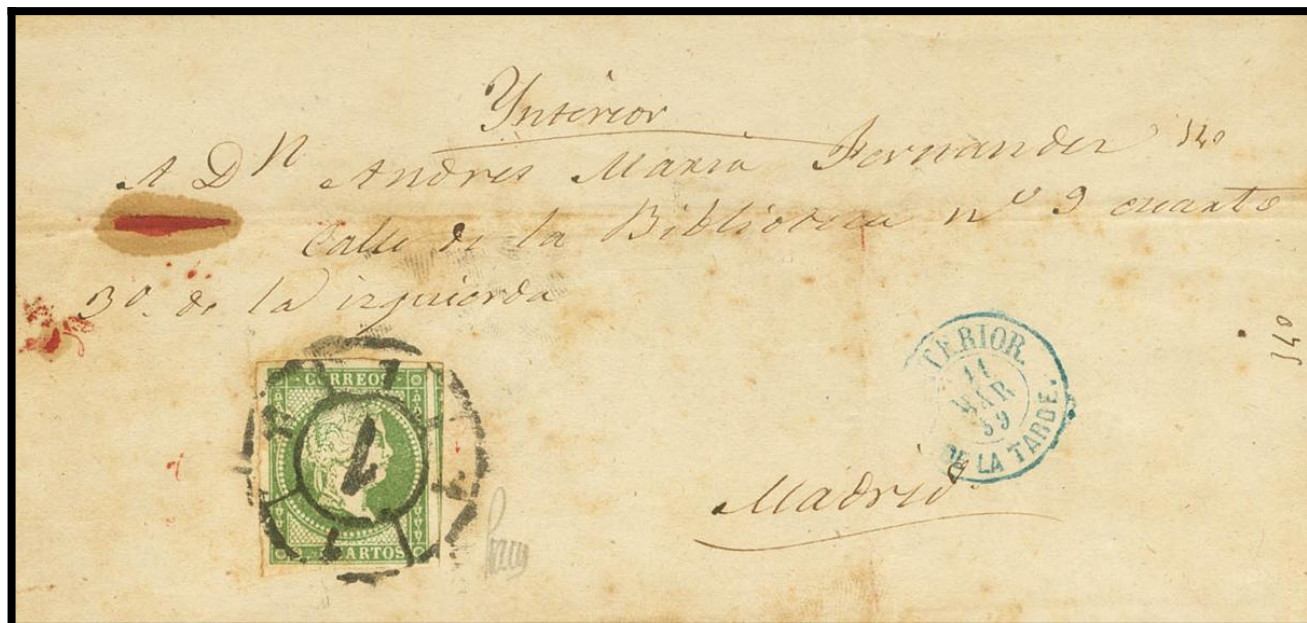 Ynterior
A Dn Andres Maria Fernandez
Calle de la Biblioteca nº 9 cuarto
3º. de la izquierda
CORREOS
1
ARTOS
TERIOR.
11
MAR
59
DE LA TARDE.
Madrid